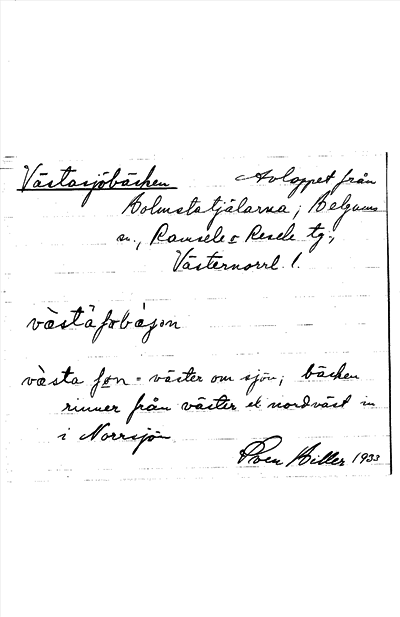 Västasjöbäcken Avloppet från
Bolmstatjälarna; Helgums
sn., Ramsele o Resele tg.,
Västernorrl. l.
västa om = väster om sjön; bäcken
rinner från väster el nordväst in
i Norrsjön
Sven Hiller 1933